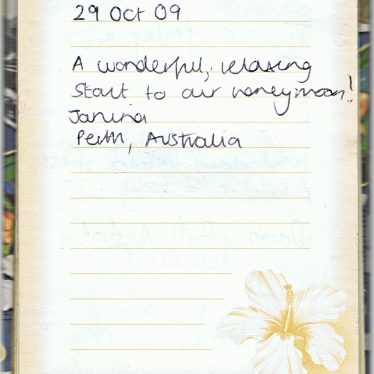 29 Oct 09
A wonderful, relaxing
start to our honeymoon!
Janina
Perth, Australia